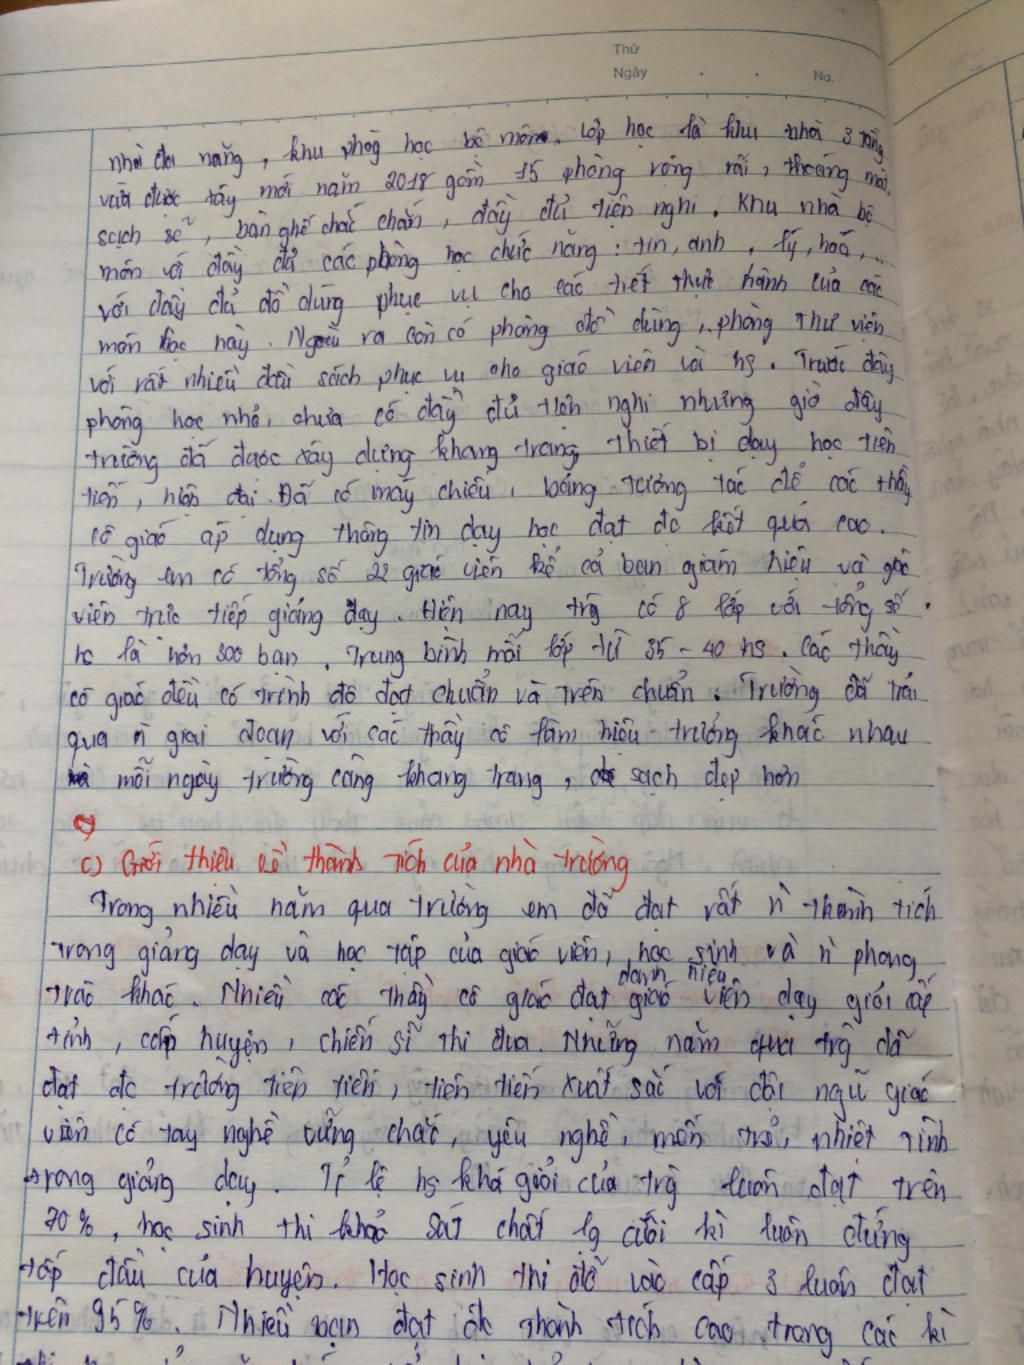 Thứ
Ngày . . No.
nhà đa năng, khu phòng học bộ môn. Lớp học là khu nhà 3 tầng
vừa được xây mới năm 2018 gồm 15 phòng rộng rãi, thoáng mát,
sạch sẽ, bàn ghế chắc chắn, đầy đủ tiện nghi. Khu nhà bộ
môn với đầy đủ các phòng học chức năng: tin, anh, lý, hoá,...
với đầy đủ đồ dùng phục vụ cho các tiết thực hành của các
môn học này. Ngoài ra còn có phòng đồ dùng, phòng thư viện
với rất nhiều đầu sách phục vụ cho giáo viên và hs. Trước đây
phòng học nhỏ, chưa có đầy đủ tiện nghi nhưng giờ đây
trường đã được xây dựng khang trang, thiết bị dạy học tiên
tiến, hiện đại. Đã có máy chiếu, bảng tương tác để các thầy
cô giáo áp dụng thông tin dạy học đạt đc kết quả cao.
Trường em có tổng số 22 giáo viên kể cả ban giám hiệu và giáo
viên trực tiếp giảng dạy. Hiện nay trg có 8 lớp với tổng số
hs là hơn 300 bạn. Trung bình mỗi lớp từ 35 - 40 hs. Các thầy
cô giáo đều có trình độ đạt chuẩn và trên chuẩn. Trường đã trải
qua n giai đoạn với các thầy cô làm hiệu trưởng khác nhau
và mỗi ngày trường càng khang trang, sạch đẹp hơn
c) Giới thiệu về thành tích của nhà trường
Trong nhiều năm qua trường em đã đạt rất n thành tích
trong giảng dạy và học tập của giáo viên, học sinh và n phong
danh hiệu
trào khác. Nhiều các thầy cô giáo đạt giáo viên dạy giỏi cấp
tỉnh, cấp huyện, chiến sĩ thi đua. Những năm qua trg đã
đạt đc trường tiên tiến, tiên tiến xuất sắc với đội ngũ giáo
viên có tay nghề vững chắc, yêu nghề, mến trẻ, nhiệt tình
trong giảng dạy. Tỉ lệ hs khá giỏi của trg luôn đạt trên
70%, học sinh thi khảo sát chất lg cuối kì luôn đứng
tốp đầu của huyện. Học sinh thi đỗ vào cấp 3 luôn đạt
trên 95%. Nhiều bạn đạt đc thành tích cao trong các kì